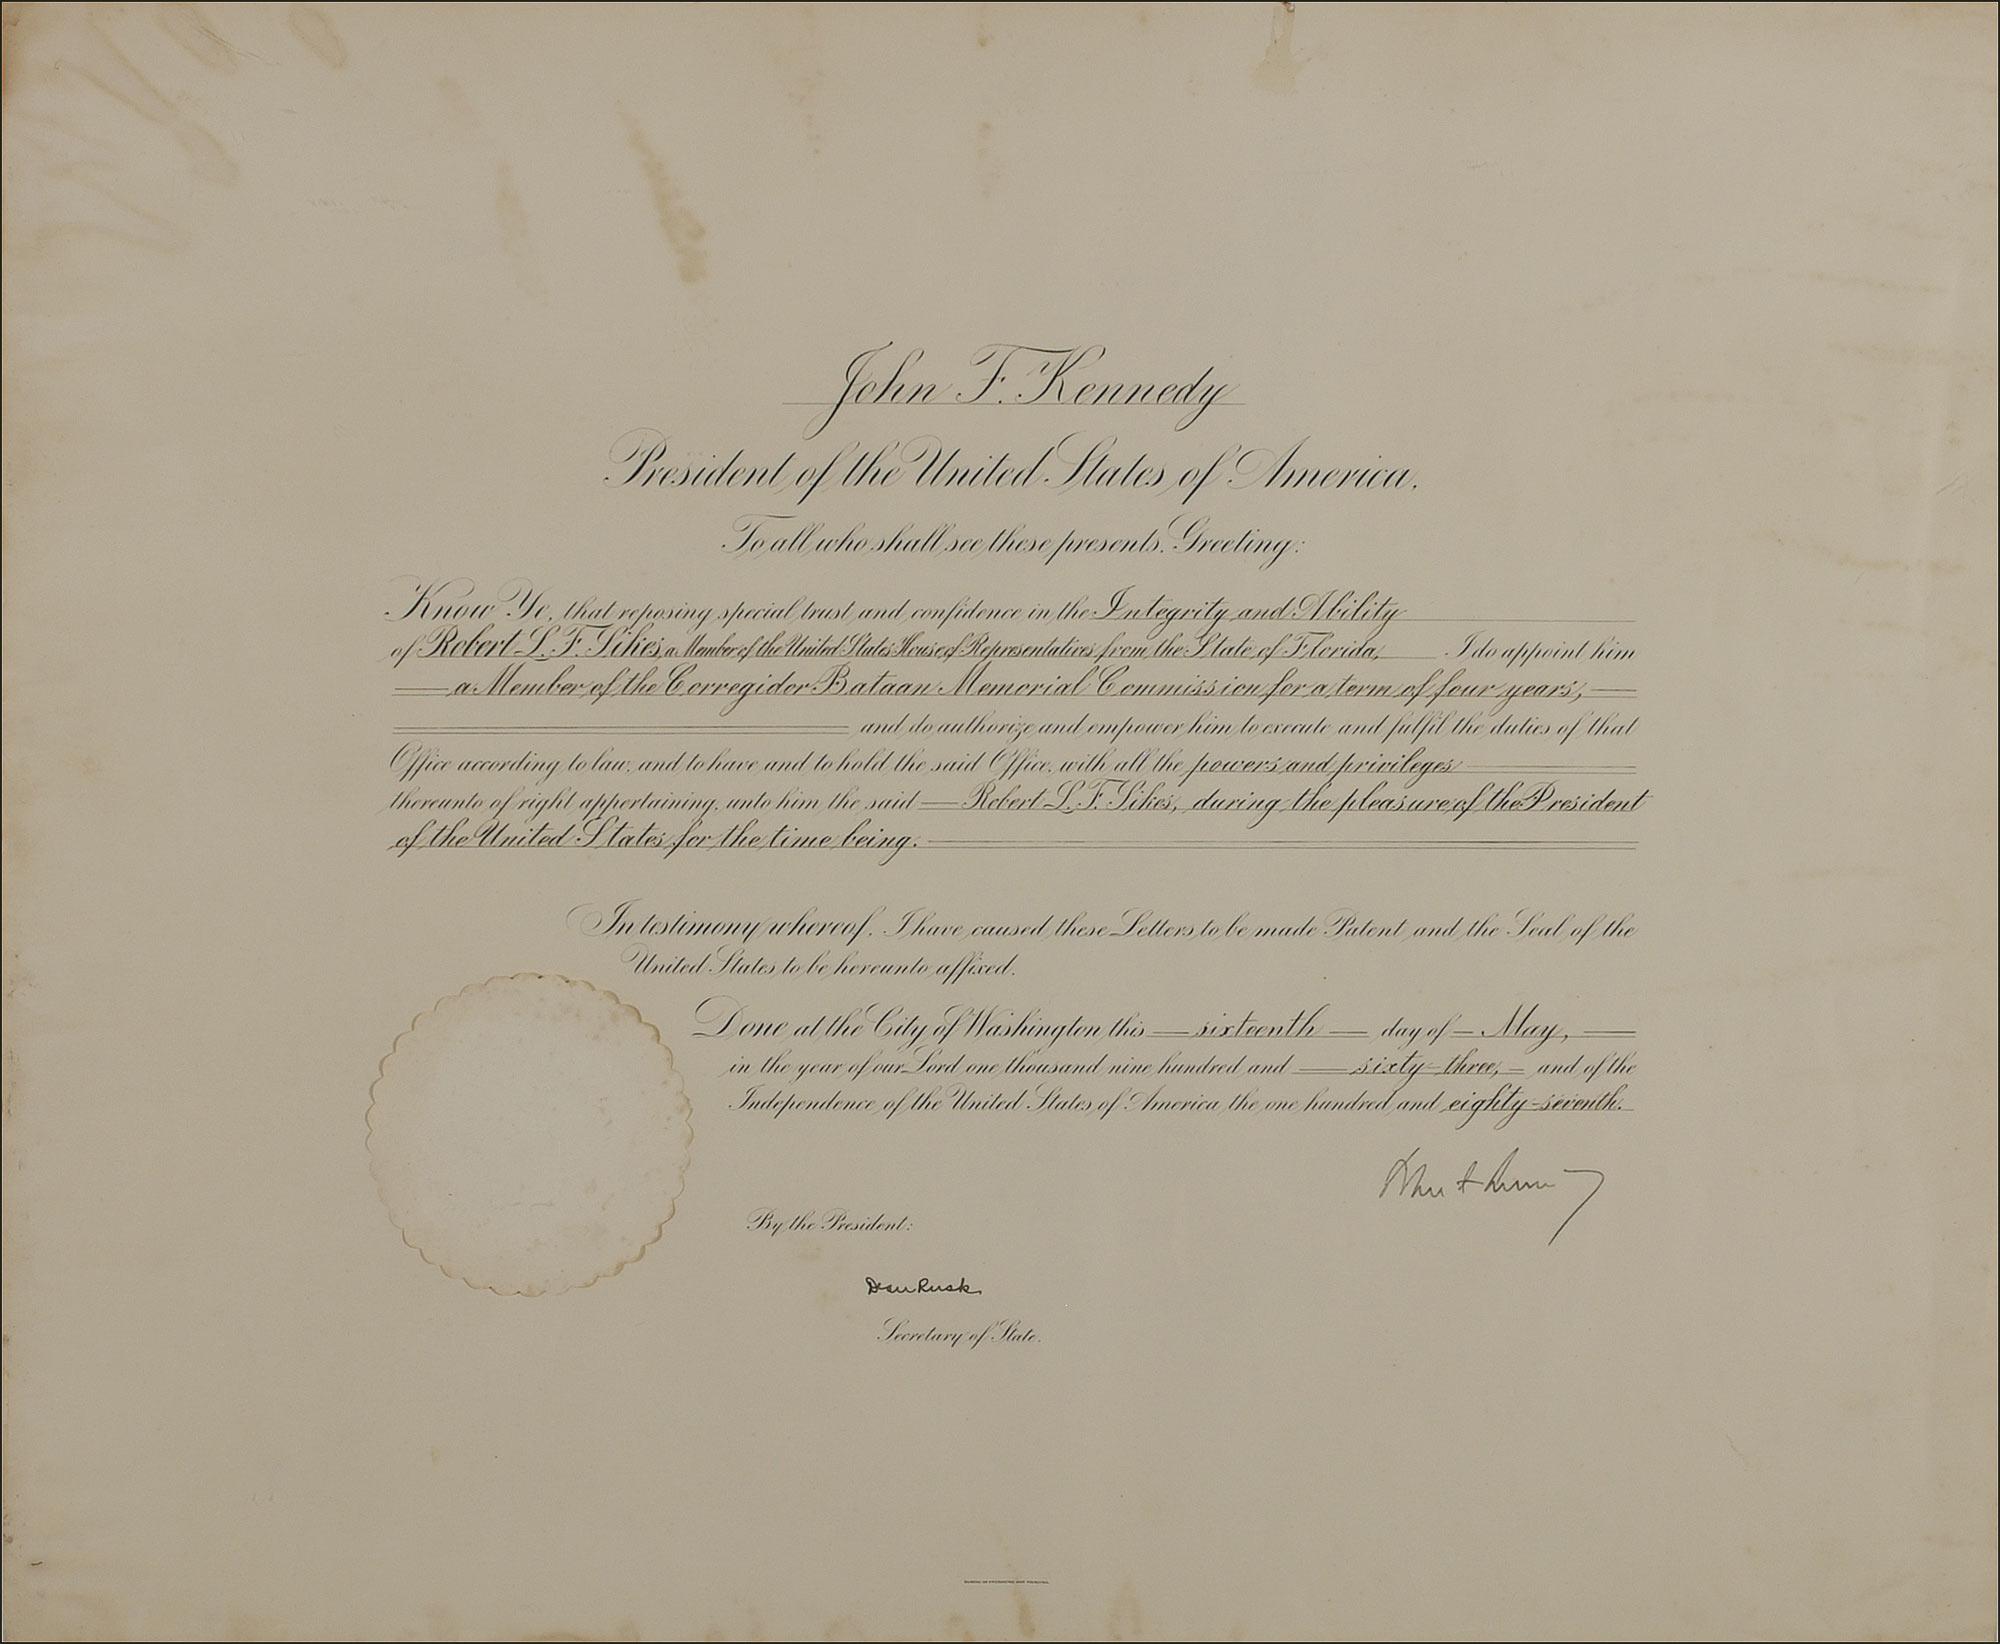 John F. Kennedy
President of the United States of America.
To all who shall see these presents, Greeting:
Know Ye, that reposing special trust and confidence in the Integrity and Ability
of Robert L. F. Sikes, a Member of the United States House of Representatives from the State of Florida, I do appoint him
a Member of the Corregidor Bataan Memorial Commission for a term of four years,
and do authorize and empower him to execute and fulfil the duties of that
Office according to law, and to have and to hold the said Office, with all the powers and privileges
thereunto of right appertaining, unto him the said Robert L. F. Sikes, during the pleasure of the President
of the United States for the time being.
In testimony whereof, I have caused these Letters to be made Patent and the Seal of the
United States to be hereunto affixed.
Done at the City of Washington this sixteenth day of May,
in the year of our Lord one thousand nine hundred and sixty-three, and of the
Independence of the United States of America the one hundred and eighty-seventh.
By the President:
Dean Rusk
Secretary of State.
BUREAU OF ENGRAVING AND PRINTING